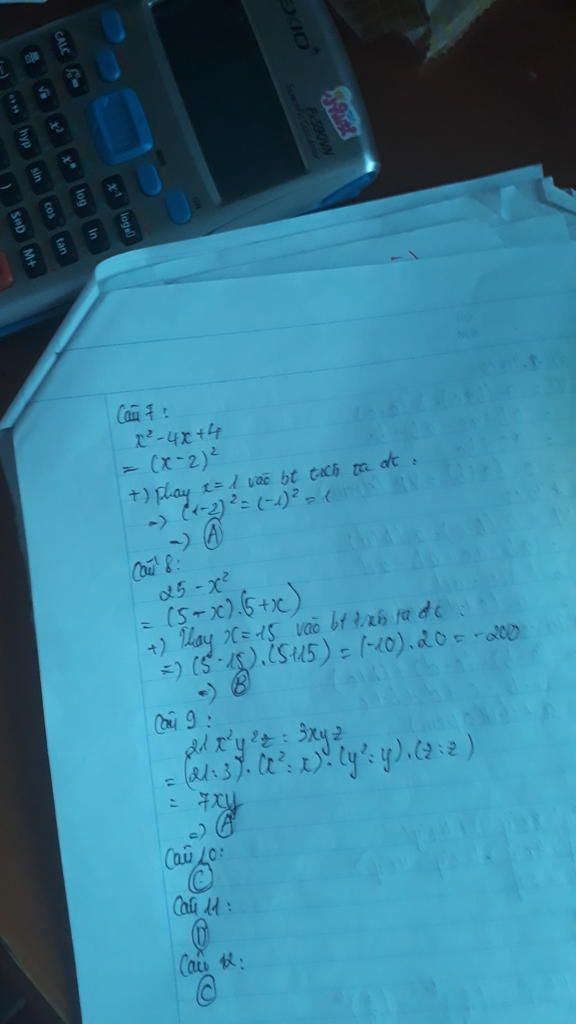 CALC
x²
hyp
sin
cos
tan
log
ln
x⁻¹
S⇔D
M+
Câu 7:
x² - 4x + 4
= (x - 2)²
+) Thay x = 1 vào bt trên ta đc:
=> (1-2)² = (-1)² = 1
=> A
Câu 8:
25 - x²
= (5 - x).(5 + x)
+) Thay x = 15 vào bt trên ta đc:
=> (5 - 15).(5+15) = (-10).20 = -200
=> B
Câu 9:
21x²y²z : 3xyz
= (21:3).(x²:x).(y²:y).(z:z)
= 7xy
=> A
Câu 10:
C
Câu 11:
D
Câu 12:
C